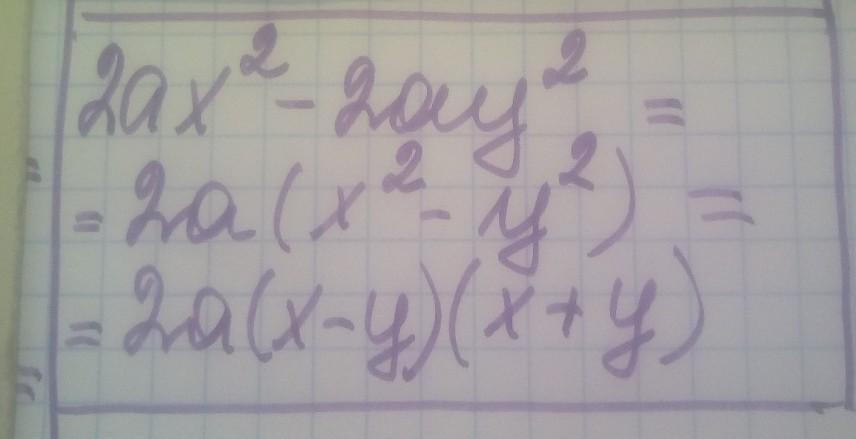 2ax² - 2ay² =
= 2a(x² - y²) =
= 2a(x-y)(x+y)